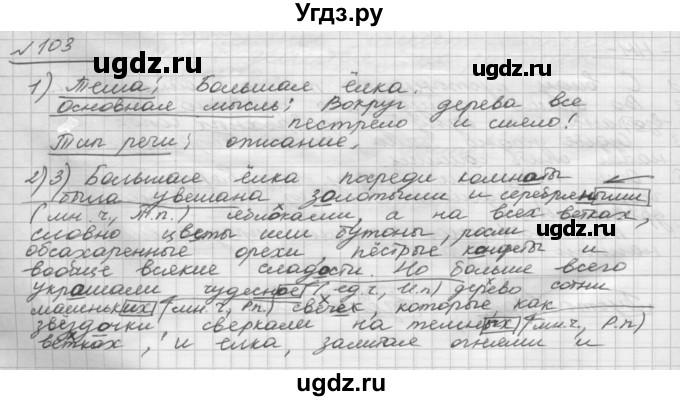 Угдз.ру
№ 103
1) Тема: Большая ёлка.
Основная мысль: Вокруг дерева все
пестрело и сияло!
Тип речи: описание.
2) 3) Большая ёлка посреди комнаты
была увешана золотыми и серебряными
(мн. ч., Т.п.) яблоками, а на всех ветках,
словно цветы или бутоны, росли
обсахаренные орехи, пёстрые конфеты и
вообще всякие сладости. Но больше всего
украшали чудесное (ед. ч., И.п) дерево сотни
маленьких (мн. ч., Р.п.) свечек, которые, как
звездочки, сверкали на темных (мн. ч., Р.п)
ветках, и ёлка, залитая огнями и
ugdz.ru
ugdz.ru
ugdz.ru
ugdz.ru
ugdz.ru
ugdz.ru
ugdz.ru
ugdz.ru